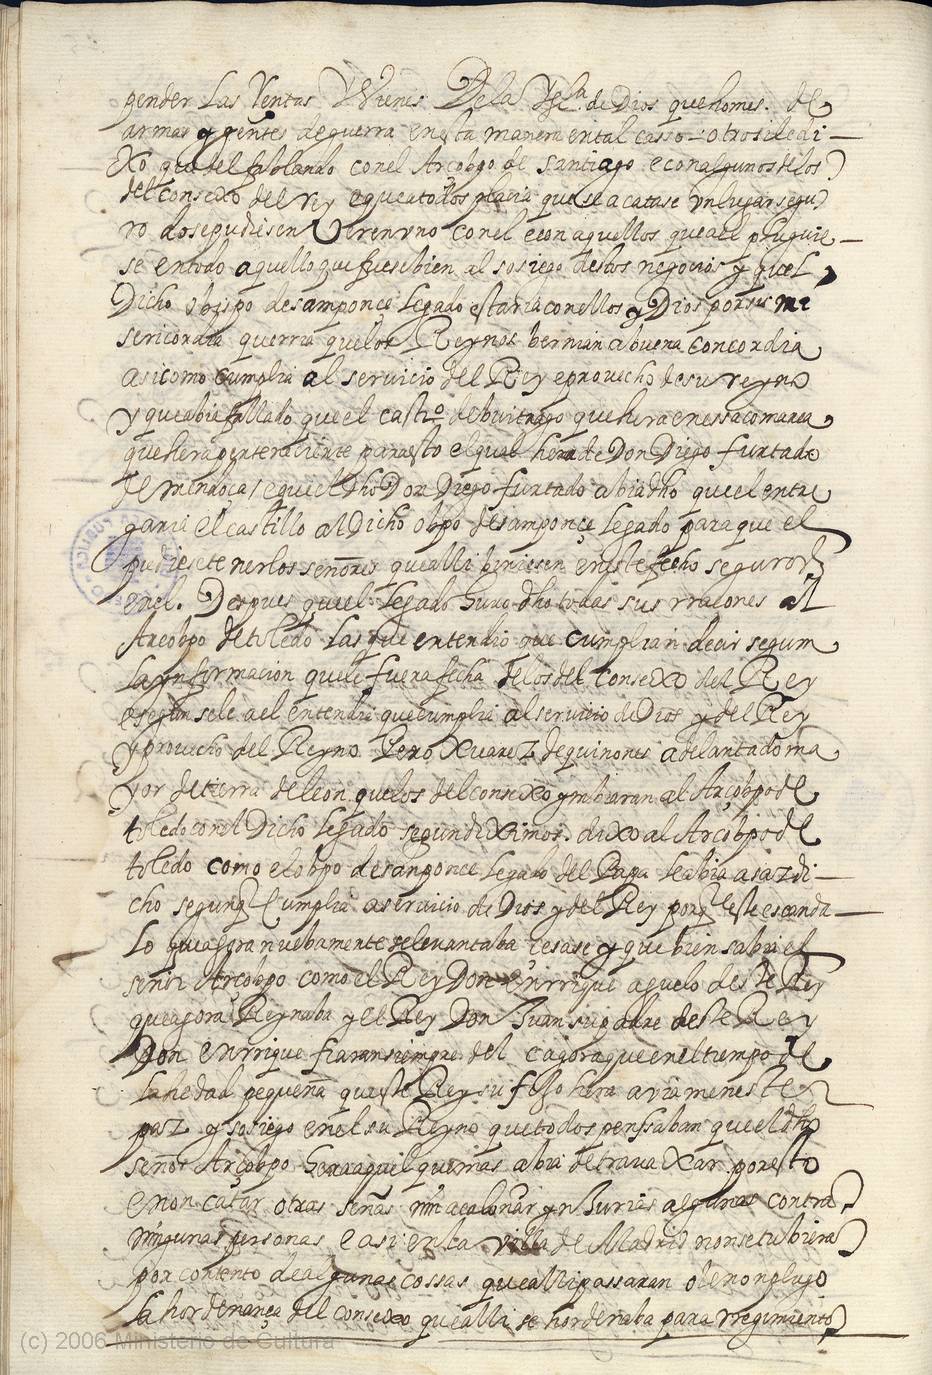 pender las Rentas Vienes De la Ygla. de Dios que homes. de
armas y gentes de guerra en esta manera en tal casso. otrosi le di-
xo que del fablando con el Arcobpo de Santiago e con algunos de los
del consexo del rey e que a todos placia que se acatase un lugar segu
ro do se pudiesen ver en uno con el e con aquellos que a el pluguie-
se en todo aquello que fuese bien al sosiego destos negocios y quel
Dicho obispo de samponce legado estaria con ellos y Dios por su mi
sericordia querria que los Reynos bernian a buena concordia
asi como cumplia al servicio del Rey e provecho de su reyno
y que abia fallado que el castiº de buitrago que hera en essa comarca
que hera perteneciente para esto el qual hera de Don Diego furtado
de mendoça / e que el Dho Don Diego furtado abia dho que el entre
garia el castillo al Dicho obpo de samponçe legado para que el
pudiese tener los señores que alli biniesen en este fecho seguros
en el. Despues que el legado huvo dho todas sus rraçones al
Arcobpo de toledo las que entendio que cumplian decir segun
la ynformacion que le fuera fecha de los del Consexo del Rey
e segun se le a el entendia que cumplia al servicio de Dios y del Rey
y provecho del Reyno Pero Xuarez de quinones adelantado ma
yor de tierra de leon que los del consexo ymbiaran al Arçobpo de
toledo con el Dicho legado segun diximos. dixo al Arcobpo de
toledo como el obpo de sanponce legado del Papa le abia asaz di-
cho segun q cumplia a servicio de Dios y del Rey porq este escanda-
lo que agora nuebamente se levantaba cesase y que bien sabia el
señor Arcobpo como el Rey Don enrrique aguelo deste Rey
que agora Reynaba y el Rey Don Juan su padre deste Rey
Don enrrique fiaran siempre del e agora que en el tiempo de
la hedad pequeña que este Rey su fijo hera avia menester
paz y sosiego en el su Reyno que todos penssaban que el dho
señor Arcobpo hera aquel que mas abia de travaxar por esto
e non catar otras señas nin acalonar ynJurias algunas contra
ningunas personas e asi en la villa de Madrid non se tubiera
por contento de algunas cossas que alli passaran o le non plugo
la hordenança del consexo que alli se hordenaba para rregimiento
(c) 2006 Ministerio de Cultura